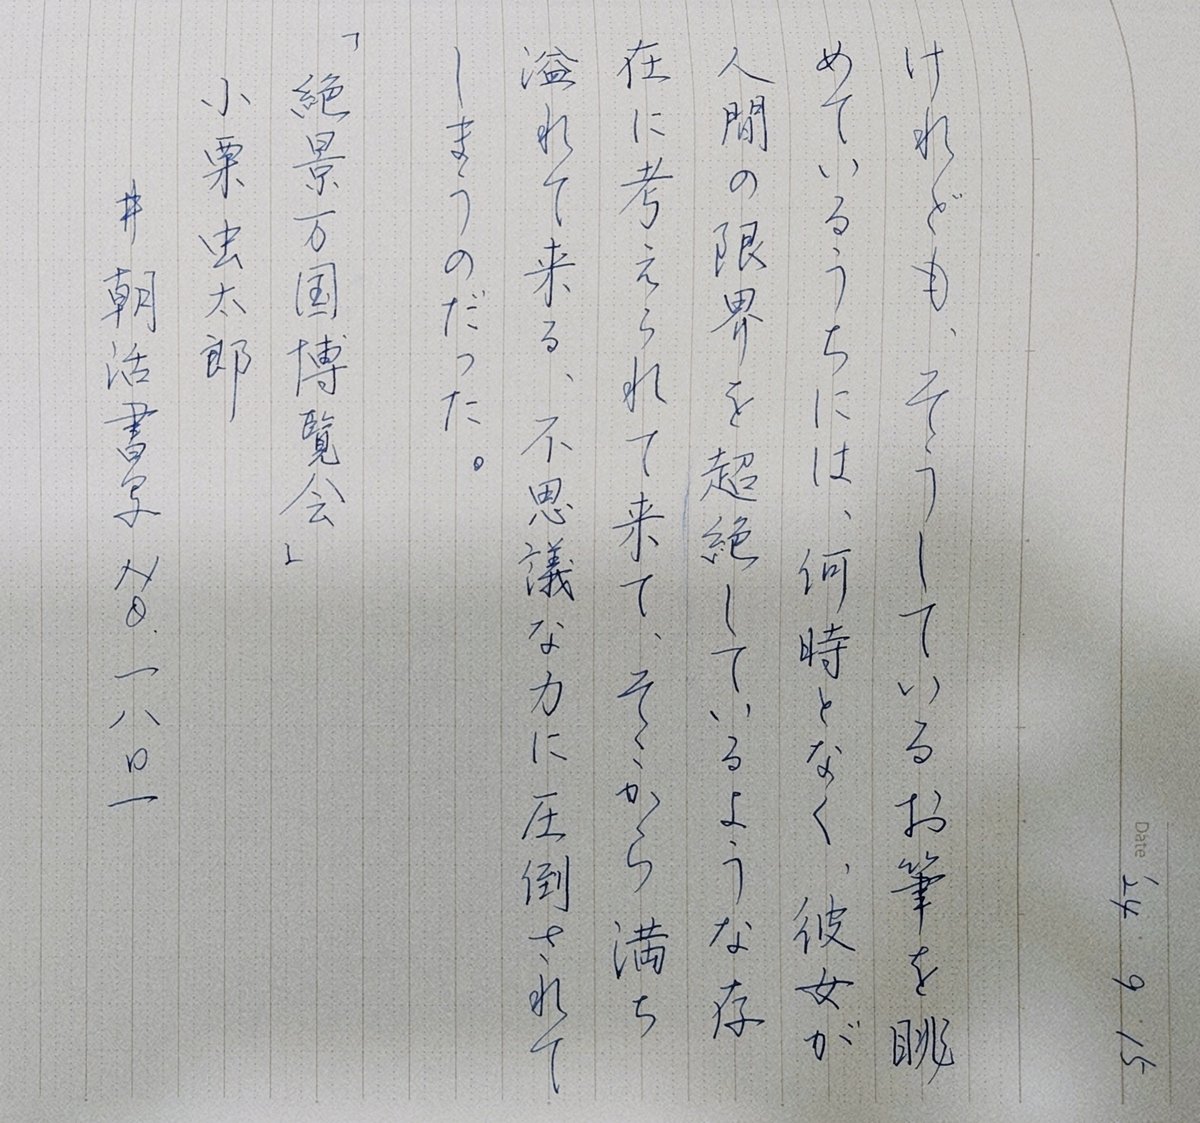 Date '24 9 15
けれども、そうしているお筆を眺
めているうちには、何時となく、彼女が
人間の限界を超絶しているような存
在に考えられて来て、そこから満ち
溢れて来る、不思議な力に圧倒されて
しまうのだった。
「絶景万国博覧会」
小栗虫太郎
#朝活書写 一八日一